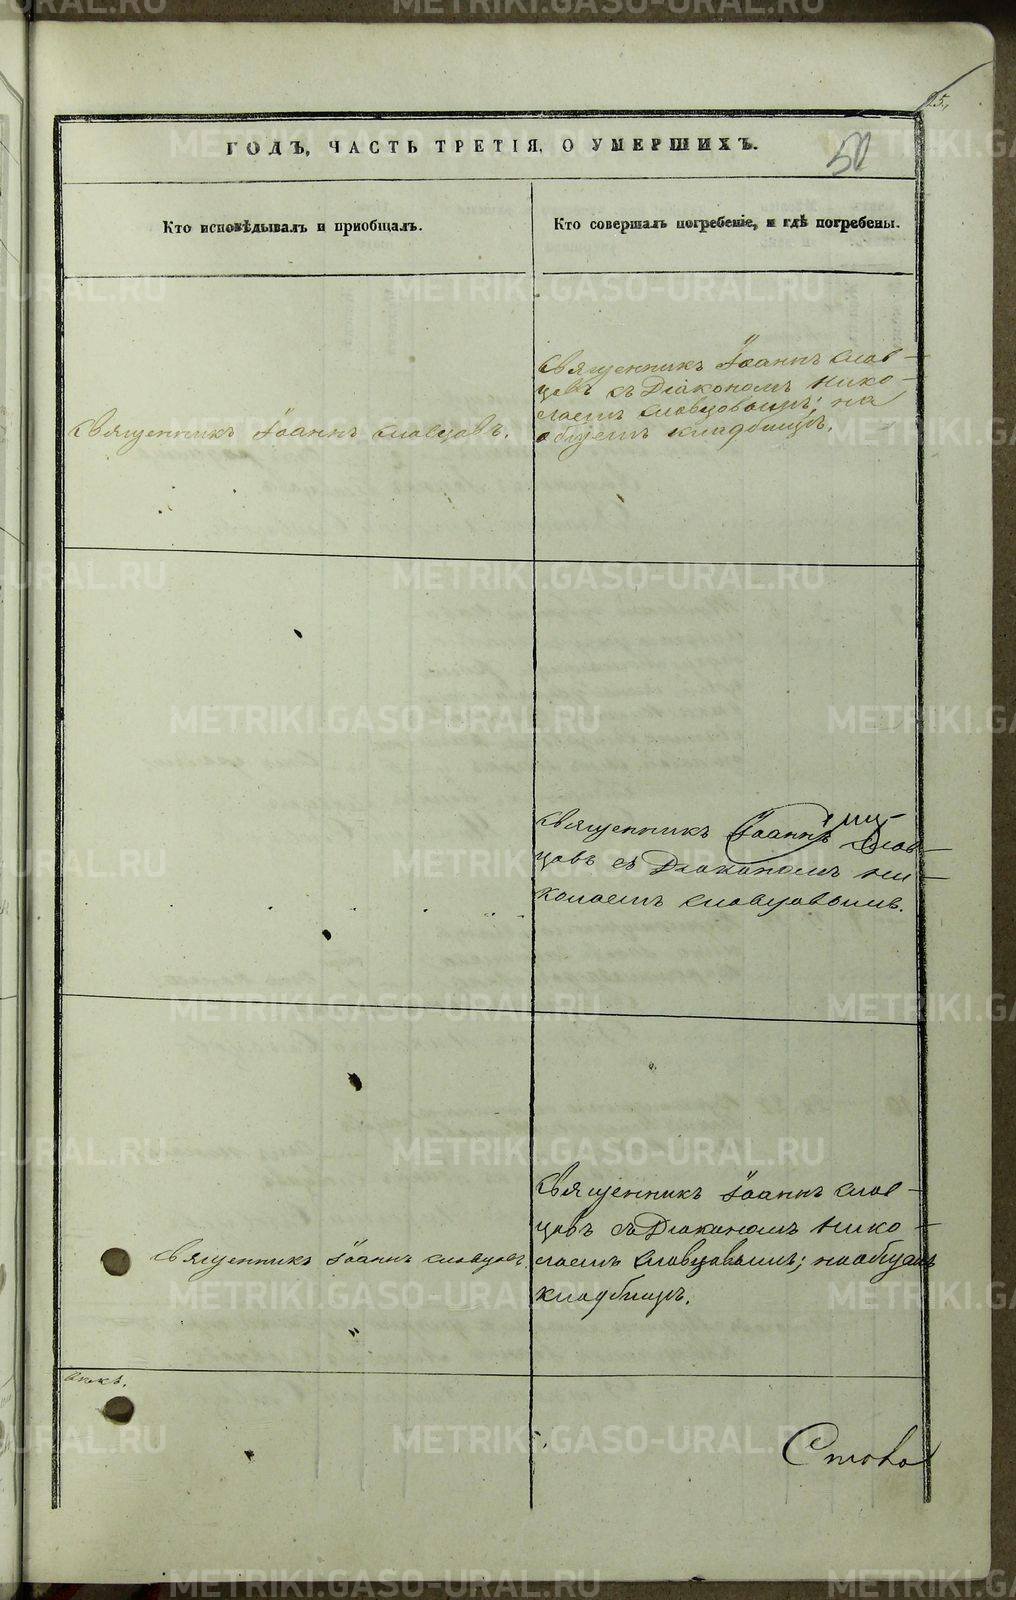 25.
50
ГОДЪ, ЧАСТЬ ТРЕТІЯ, О УМЕРШИХЪ.
Кто исповѣдывалъ и пріобщалъ.
Кто совершалъ погребеніе, и гдѣ погребены.
Священникъ Іоаннъ Словцовъ.
Священникъ Іоаннъ Слов-
цовъ съ Діакономъ Нико-
лаемъ Словцовымъ; на
общемъ кладбищѣ.
Священникъ Іоаннъ Слов-
цовъ съ Діакономъ Ни-
колаемъ Словцовымъ.
Священникъ Іоаннъ Словцовъ
Священникъ Іоаннъ Слов-
цовъ съ Діакономъ Нико-
лаемъ Словцовымъ; на общемъ
кладбищѣ.
METRIKI.GASO-URAL.RU